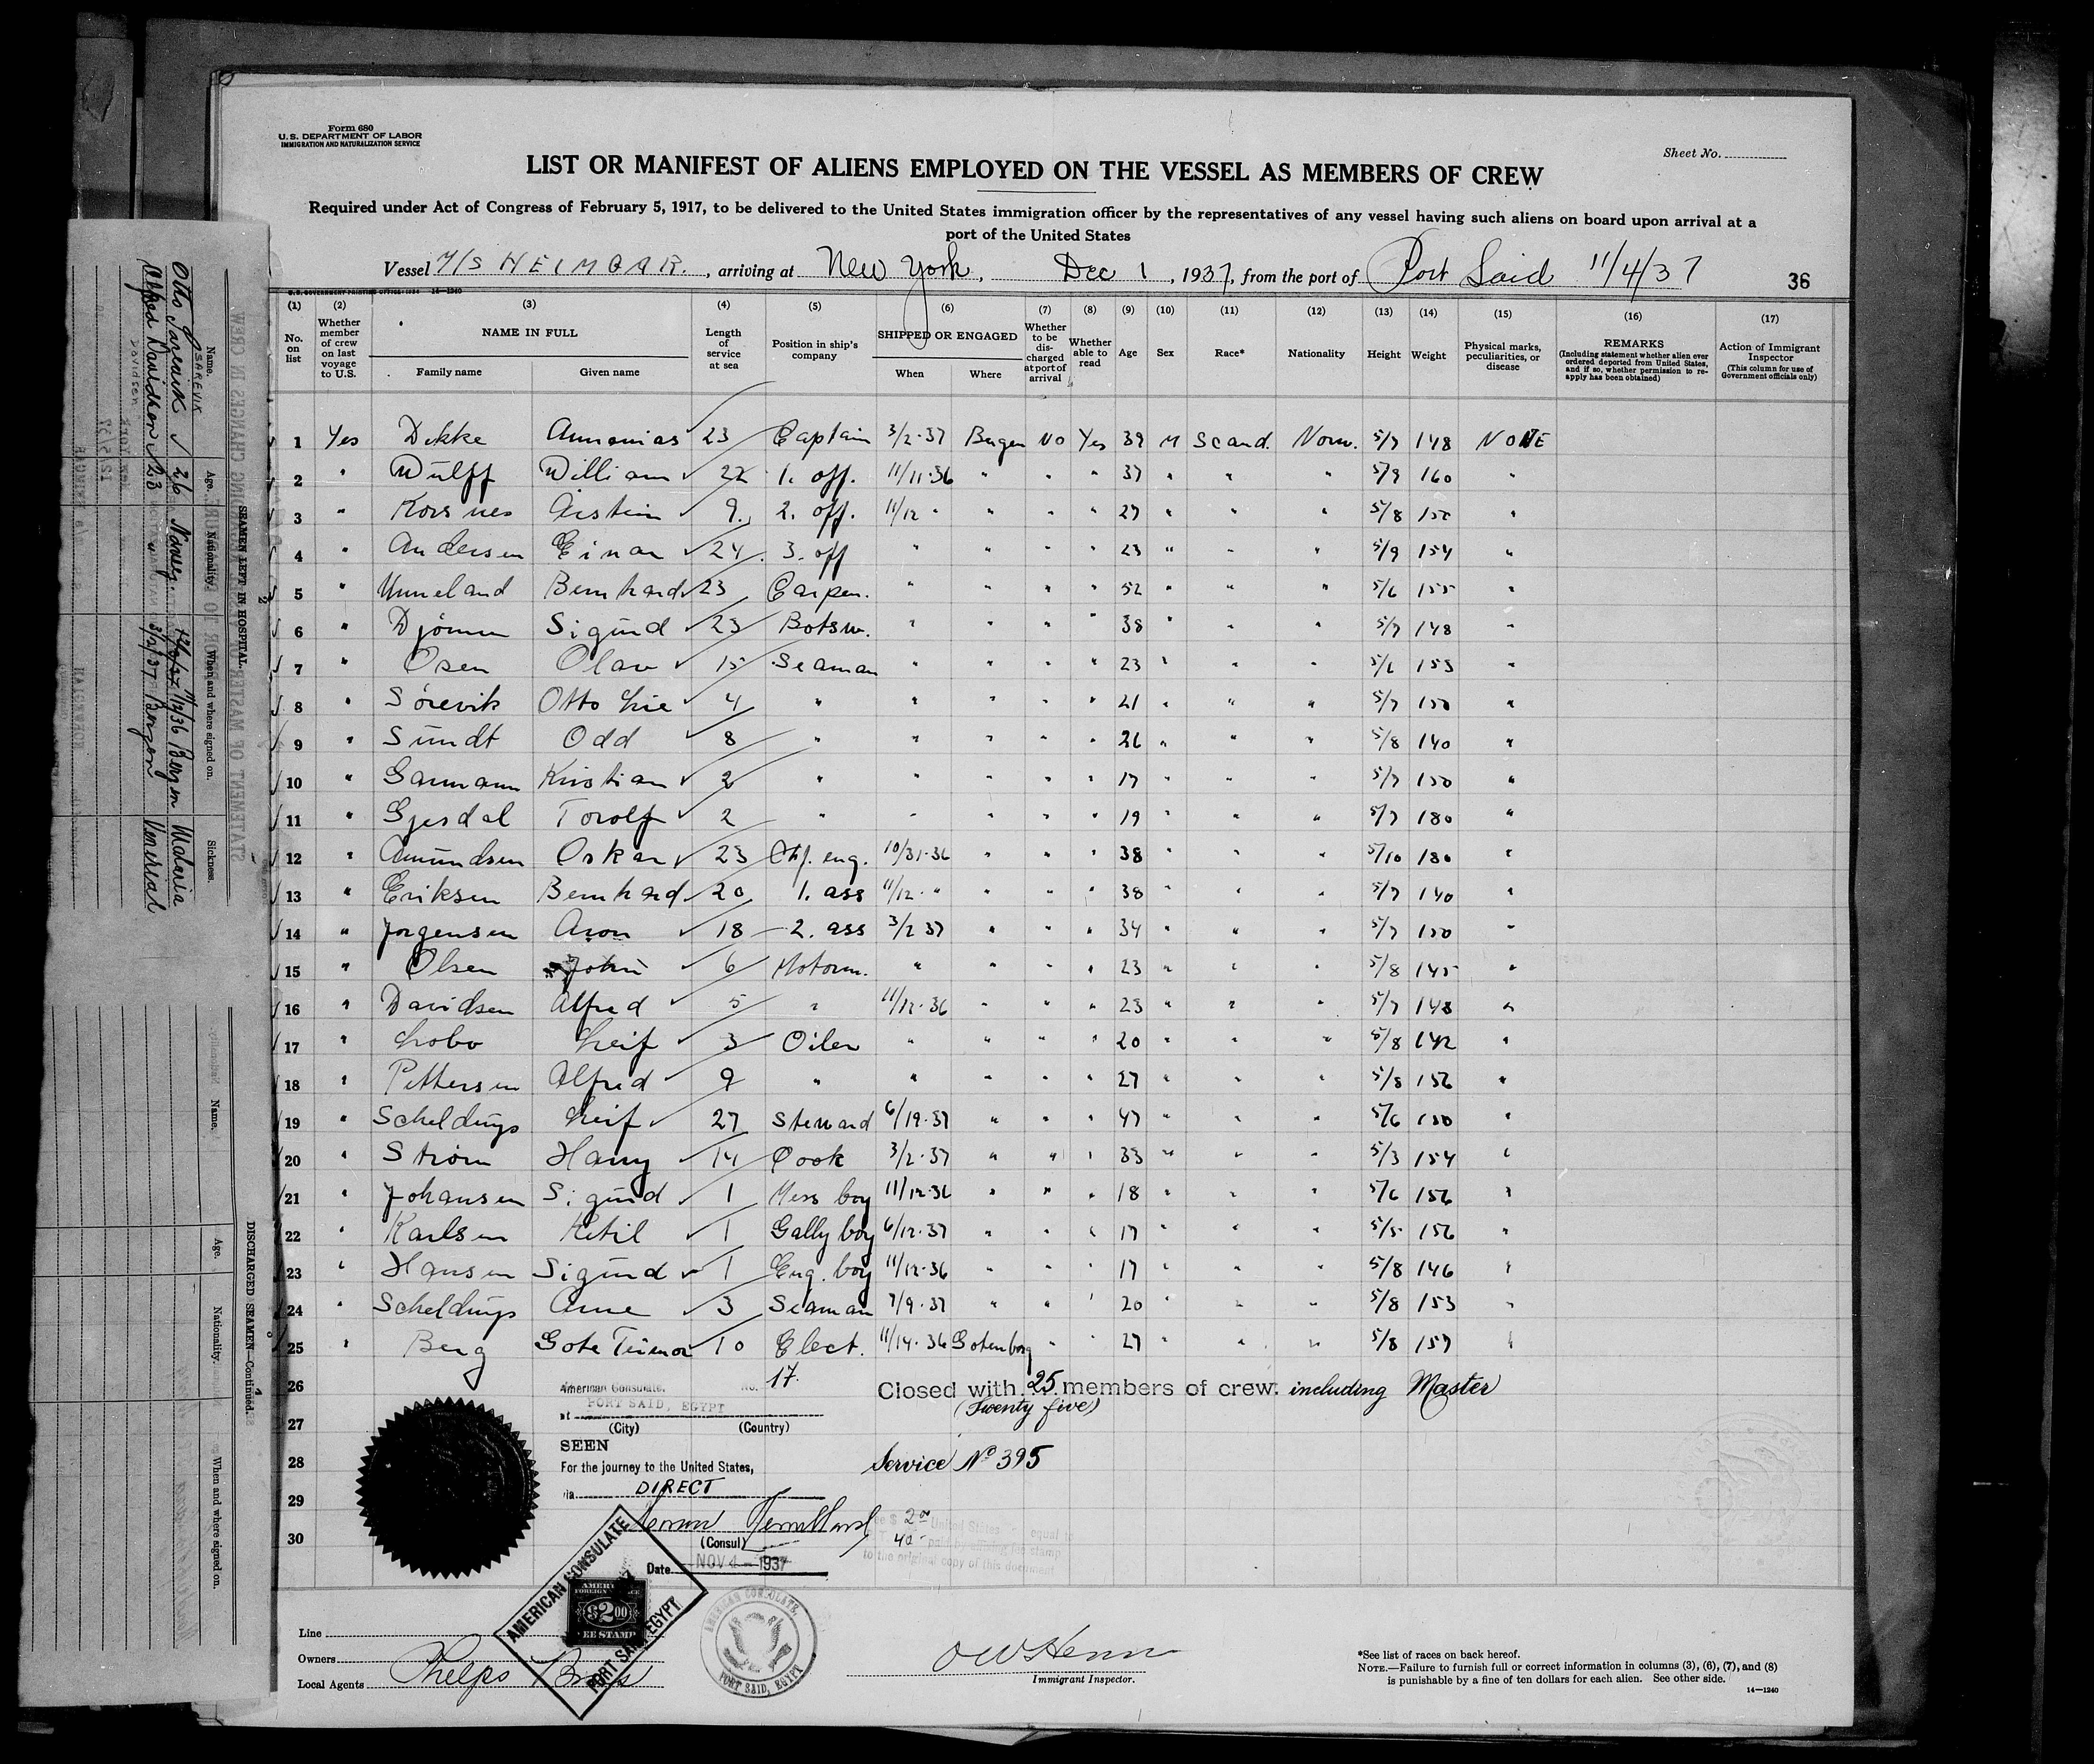 Form 680
U.S. DEPARTMENT OF LABOR
IMMIGRATION AND NATURALIZATION SERVICE
Sheet No.
LIST OR MANIFEST OF ALIENS EMPLOYED ON THE VESSEL AS MEMBERS OF CREW
Required under Act of Congress of February 5, 1917, to be delivered to the United States immigration officer by the representatives of any vessel having such aliens on board upon arrival at a
port of the United States
Vessel M/S HEIMGAR., arriving at New York, Dec 1, 1937, from the port of Port Said 11/4/37
36
(1) (2) (3) (4) (5) (6) (7) (8) (9) (10) (11) (12) (13) (14) (15) (16) (17)
No. on list Whether member of crew on last voyage to U.S. NAME IN FULL Family name Given name Length of service at sea Position in ship's company SHIPPED OR ENGAGED When Where Whether to be discharged at port of arrival Whether able to read Age Sex Race* Nationality Height Weight Physical marks, peculiarities, or disease REMARKS (Including statement whether alien ever ordered deported from United States, and if so, whether permission to reapply has been obtained) Action of Immigrant Inspector (This column for use of Government officials only)
1 Yes Dekke Annanias 23 Captain 3/2-37 Bergen No Yes 39 M Scand. Norw. 5/7 148 NONE
2 " Wulff William 22 1. off. 11/11-36 " " " 37 " " " 5/9 160 "
3 " Korsnes Aistein 9. 2. off. 11/12 " " " " 27 " " " 5/8 150 "
4 " Andersen Einar 24 3. off " " " " 23 " " " 5/9 154 "
5 " Unneland Bernhard 23 Carpen. " " " 52 " " " 5/6 155 "
6 " Sigurd 23 Botsw. " " " " 38 " " " 5/7 148 "
7 " Osen Olav 15 Seaman " " " " 23 " " " 5/6 153 "
8 " Sörevik Otto Lie 4 " " " " " 21 " " " 5/7 150 "
9 " Sundt Odd 8 " " " " " 26 " " " 5/8 140 "
10 " Garmann Kristian 2 " " " " " 17 " " " 5/7 150 "
11 " Gjesdal Torolf 2 " " " " " 19 " " " 5/7 180 "
12 " Amundsen Oskar 23 Chf. eng. 10/31-36 " " " 38 " " " 5/10 180 "
13 " Eriksen Bernhard 20 1. ass 11/12- " " " " 38 " " " 5/7 140 "
14 " Jorgensen Aron 18 2. ass 3/2 37 " " " 34 " " " 5/7 150 "
15 " Olsen John 6 Motorm. " " " " 23 " " " 5/8 145 "
16 " Davidsen Alfred 5 " 11/12-36 " " " 23 " " " 5/7 148 "
17 " Lobo Leif 3 Oiler " " " " 20 " " " 5/8 142 "
18 " Pettersen Alfred 9 " " " " " 27 " " " 5/8 156 "
19 " Scheldrups Leif 27 Steward 6/19-37 " " " 47 " " " 5/6 150 "
20 " Strøm Harry 14 Cook 3/2-37 " " " 33 " " " 5/3 154 "
21 " Johansen Sigurd 1 Mess boy 11/12-36 " " " 18 " " " 5/6 156 "
22 " Karlsen Ketil 1 Gally boy 6/12-37 " " " 17 " " " 5/5 156 "
23 " Hansen Sigurd 1 Eng. boy 11/12-36 " " " 17 " " " 5/8 146 "
24 " Scheldrups Arne 3 Seaman 7/9-37 " " " 20 " " " 5/8 153 "
25 " Berg Gote 10 Elect. 11/14-36 Gotenborg " " 27 " " 5/8 157 "
26 American Consulate. No. 17. Closed with 25 members of crew. including Master
at PORT SAID, EGYPT (Twenty five)
27 (City) (Country)
SEEN
28 For the journey to the United States, Service No 395
via DIRECT
29
30 (Consul)
Date NOV 4 - 1937
AMERICAN CONSULATE
PORT SAID, EGYPT
$2.00
FEE STAMP
AMERICAN CONSULATE, PORT SAID, EGYPT
Line
Owners
Local Agents Phelps Bros
Immigrant Inspector.
*See list of races on back hereof.
NOTE.—Failure to furnish full or correct information in columns (3), (6), (7), and (8)
is punishable by a fine of ten dollars for each alien. See other side.
14—1240
SEAMEN LEFT IN HOSPITAL.
Name. Age. Nationality. When and where signed on. Sickness.
SAREVIK
Otto 26 Norweg. 11/12/36 Bergen Malaria
Alfred Davidson 23 " 3/2/37 Bergen Venerial
DAVIDSEN
DISCHARGED SEAMEN—Continued.
Name. Age. Nationality. When and where signed on.